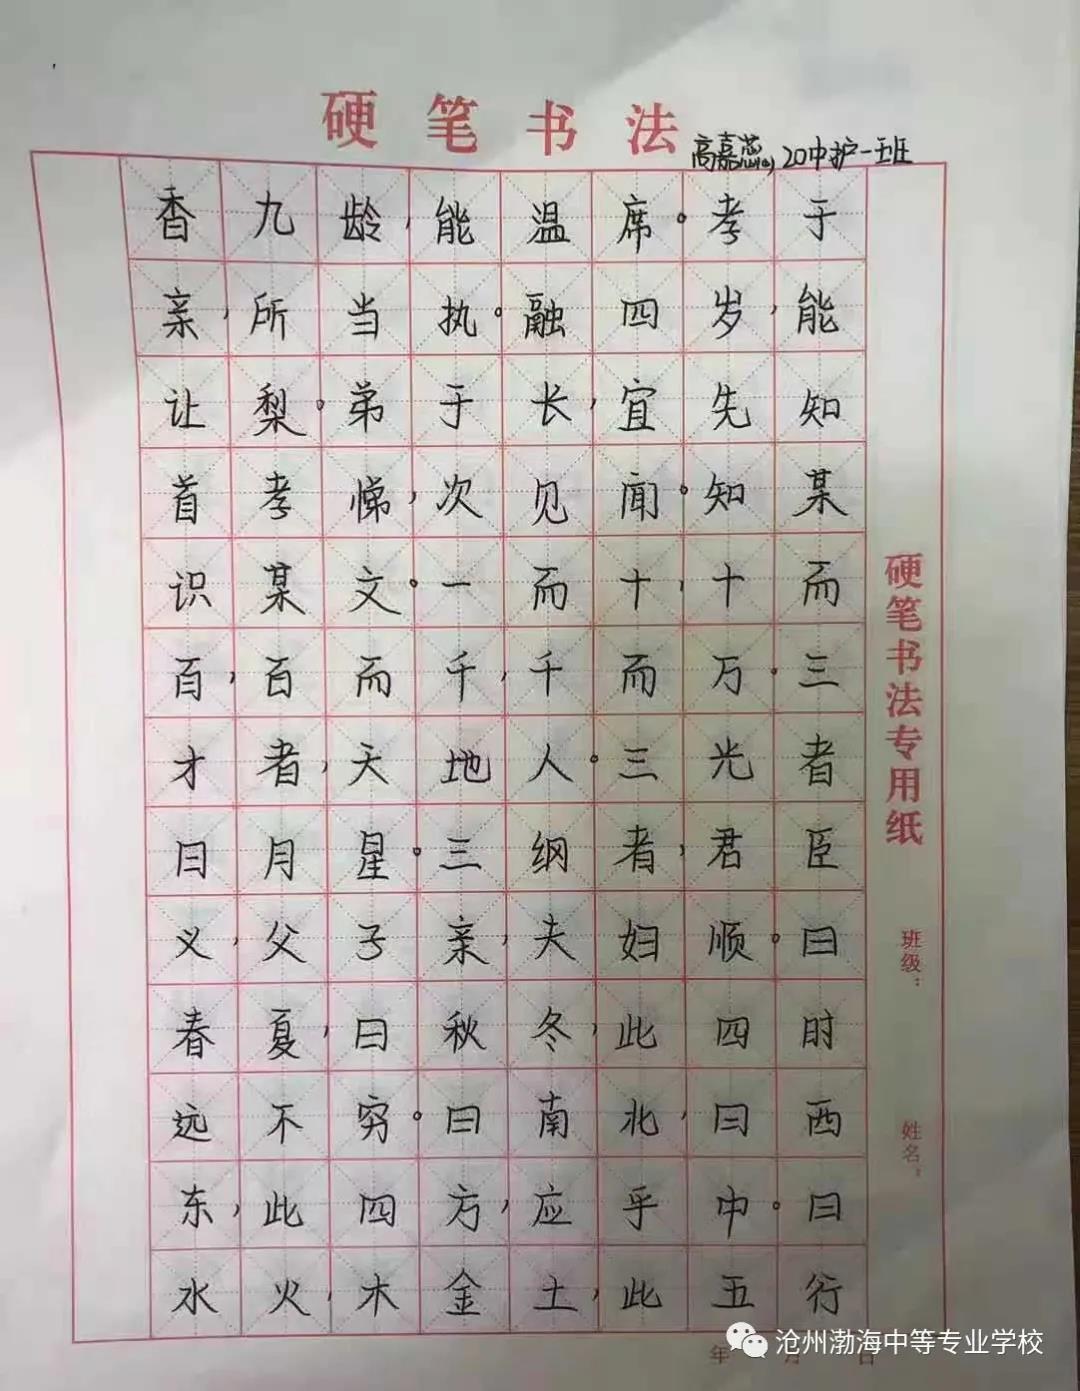 硬笔书法
高嘉蕊,20中护一班
香九龄,能温席。孝于
亲,所当执。融四岁,能
让梨。弟于长,宜先知
首孝悌,次见闻。知某
识某文。一而十,十而
百,百而千,千而万.三
才者,天地人。三光者
日月星。三纲者,君臣
义,父子亲,夫妇顺。曰
春夏,曰秋冬,此四时
远不穷。曰南北,曰西
东,此四方,应乎中。曰
水火,木金土,此五行
硬笔书法专用纸
班级:
姓名:
年 月 日
沧州渤海中等专业学校